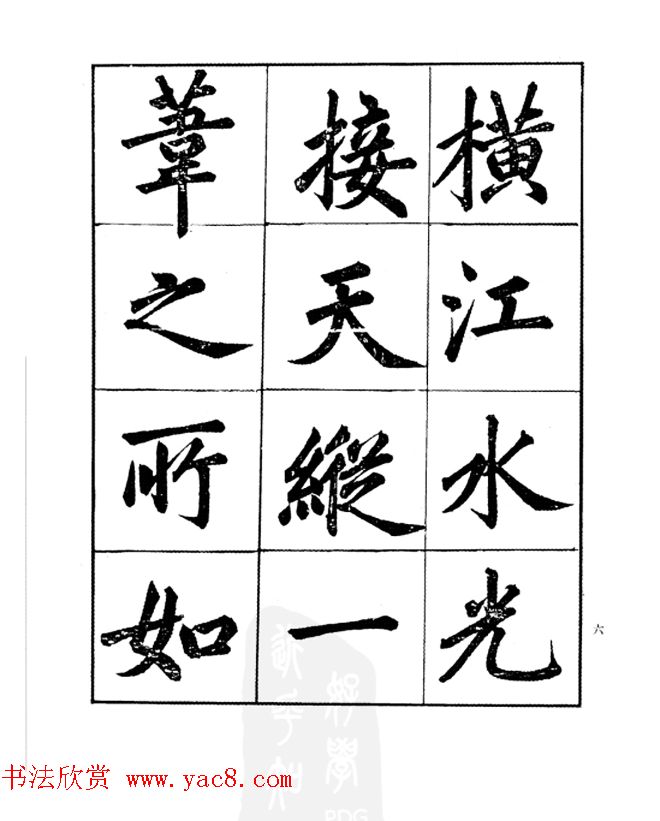 橫江水光
接天縱一
葦之所如
六
书法欣赏 www.yac8.com
PDG